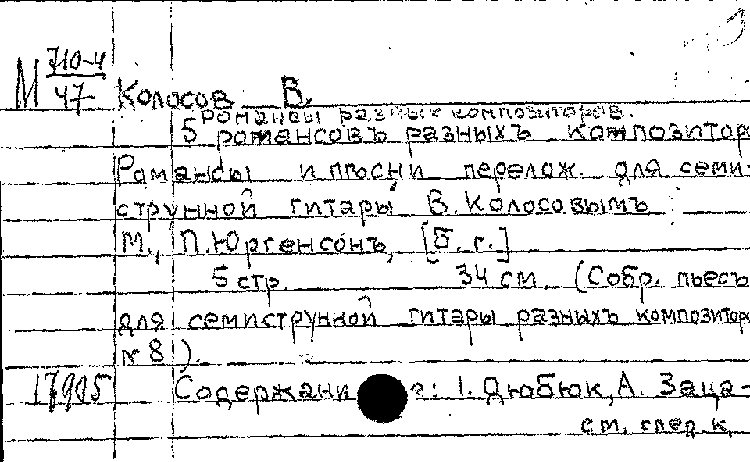 М 710-4
47
Колосов В.
Романсы разных композиторов.
5 романсовъ разныхъ композитор
Романсы и пѣсни перелож. для семи-
струнной гитары В. Колосовымъ
М., П. Юргенсонъ, [б. г.]
5 стр. 34 см. (Собр. пьесъ
для семиструнной гитары разныхъ композитор
№ 8).
17905 Содержани е: 1. Дюбюк, А. Заца-
см. след. к.